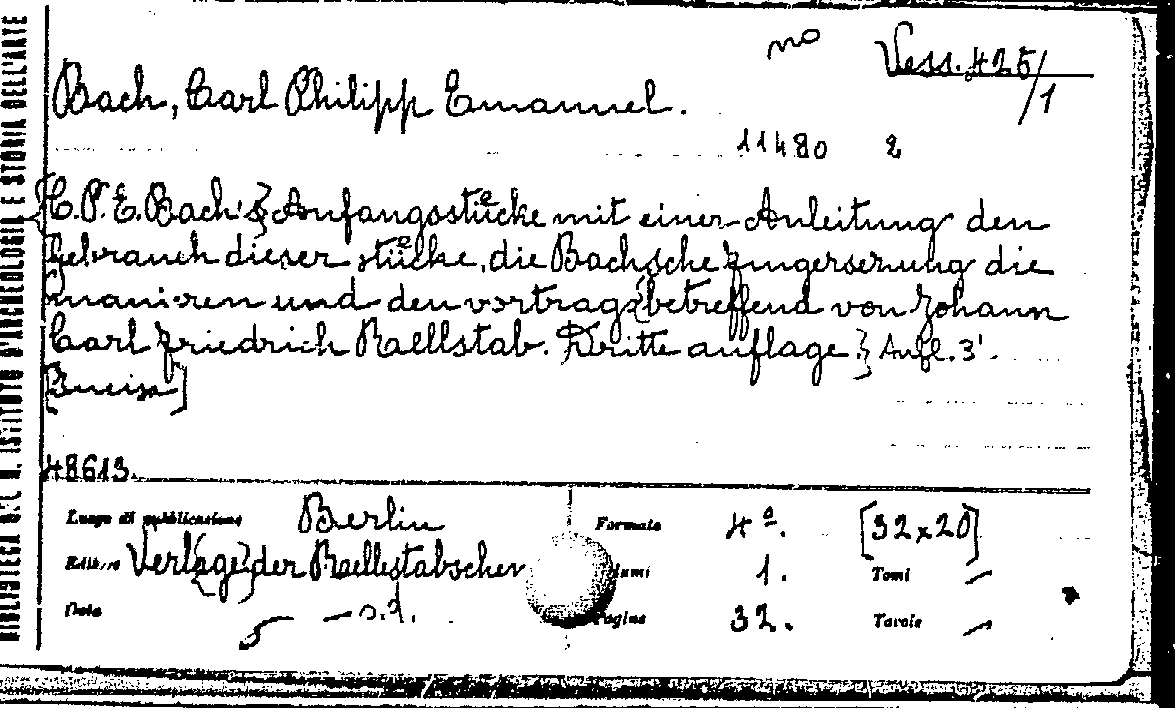 BIBLIOTECA DEL R. ISTITUTO D'ARCHEOLOGIA E STORIA DELL'ARTE
mo Vess. 425/1
Bach, Carl Philipp Emanuel.
11480 2
{C.P.E. Bach's} Anfangsstücke mit einer Anleitung den
Gebrauch dieser stücke, die Bachsche fingersezung die
manieren und den vortrag {betreffend von Johann
Carl Friedrich Raellstab. Dritte auflage.} Aufl. 3'.
48613.
Luogo di pubblicazione Berlin Formato 4º. [32x20]
Editore Verl{age} der Raellstabschen Volumi 1. Tomi —
Data — s.d. Pagine 32. Tavole —